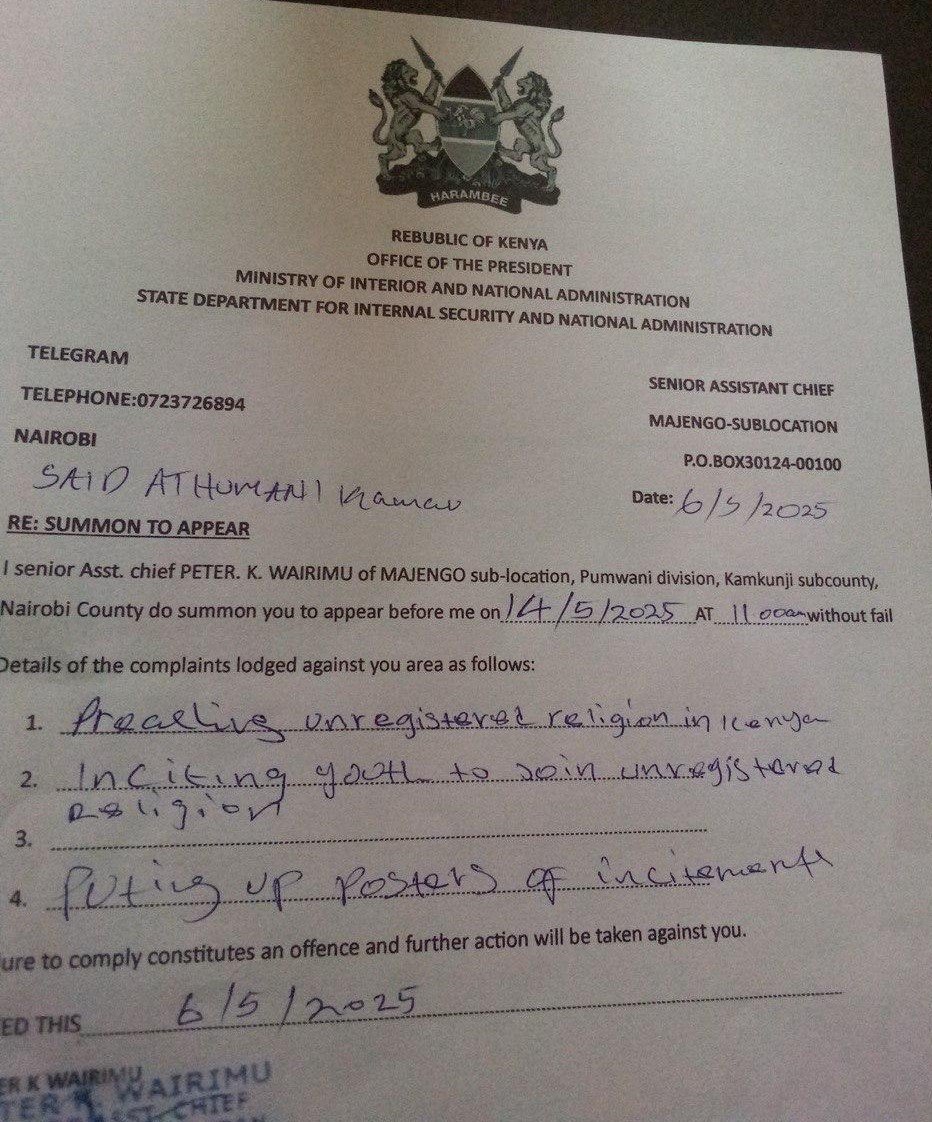 HARAMBEE
REBUBLIC OF KENYA
OFFICE OF THE PRESIDENT
MINISTRY OF INTERIOR AND NATIONAL ADMINISTRATION
STATE DEPARTMENT FOR INTERNAL SECURITY AND NATIONAL ADMINISTRATION
TELEGRAM
TELEPHONE:0723726894
NAIROBI
SENIOR ASSISTANT CHIEF
MAJENGO-SUBLOCATION
P.O.BOX30124-00100
Date: 6/5/2025
SAID ATHUMANI Kamau
RE: SUMMON TO APPEAR
I senior Asst. chief PETER. K. WAIRIMU of MAJENGO sub-location, Pumwani division, Kamkunji subcounty,
Nairobi County do summon you to appear before me on 14/5/2025 AT 11 00am without fail
Details of the complaints lodged against you area as follows:
1. unregistered religion in Kenya
2. Inciting youth to join unregistered
religion
3.
4. Puting up posters of incitement
ure to comply constitutes an offence and further action will be taken against you.
ED THIS 6/5/2025
ER K WAIRIMU
TER K. WAIRIMU
ASST. CHIEF